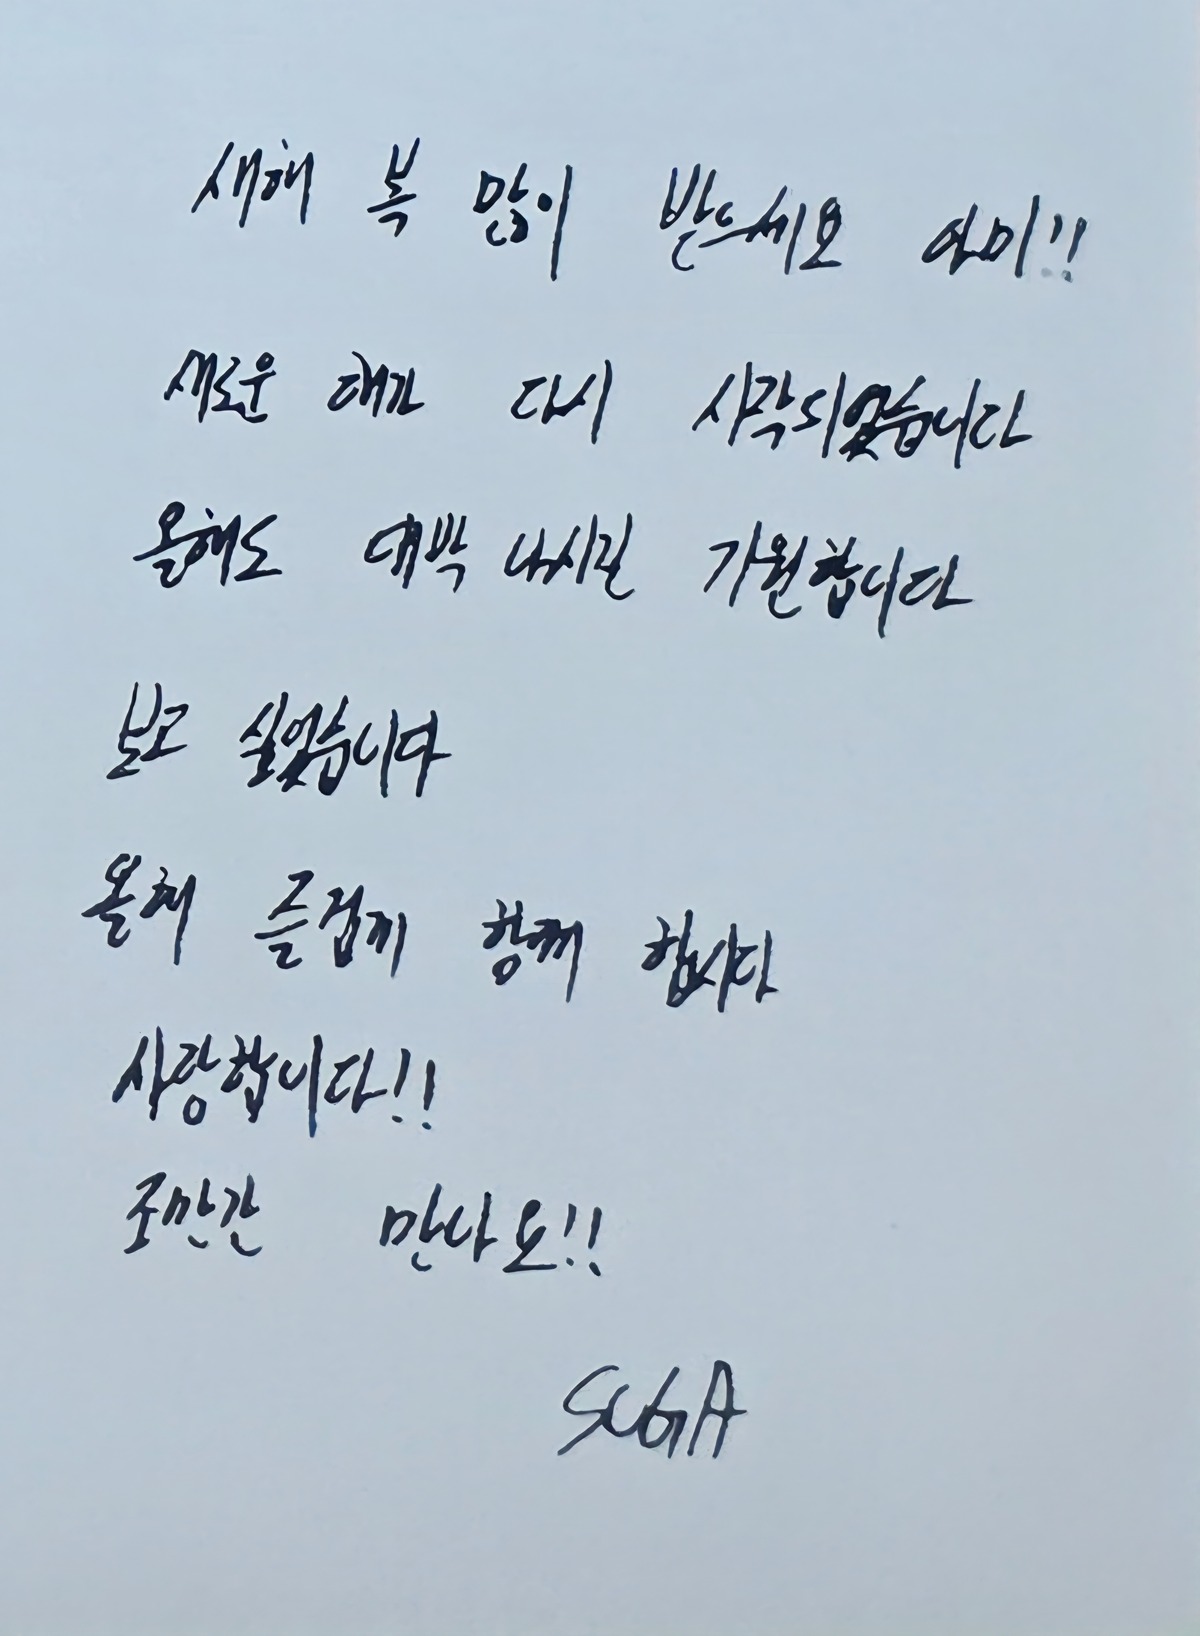 새해 복 많이 받으세요 아미!!
새로운 해가 다시 시작되었습니다
올해도 대박 나시길 기원합니다
보고 싶었습니다
올해 즐겁게 함께 합시다
사랑합니다!!
조만간 만나요!!
SUGA